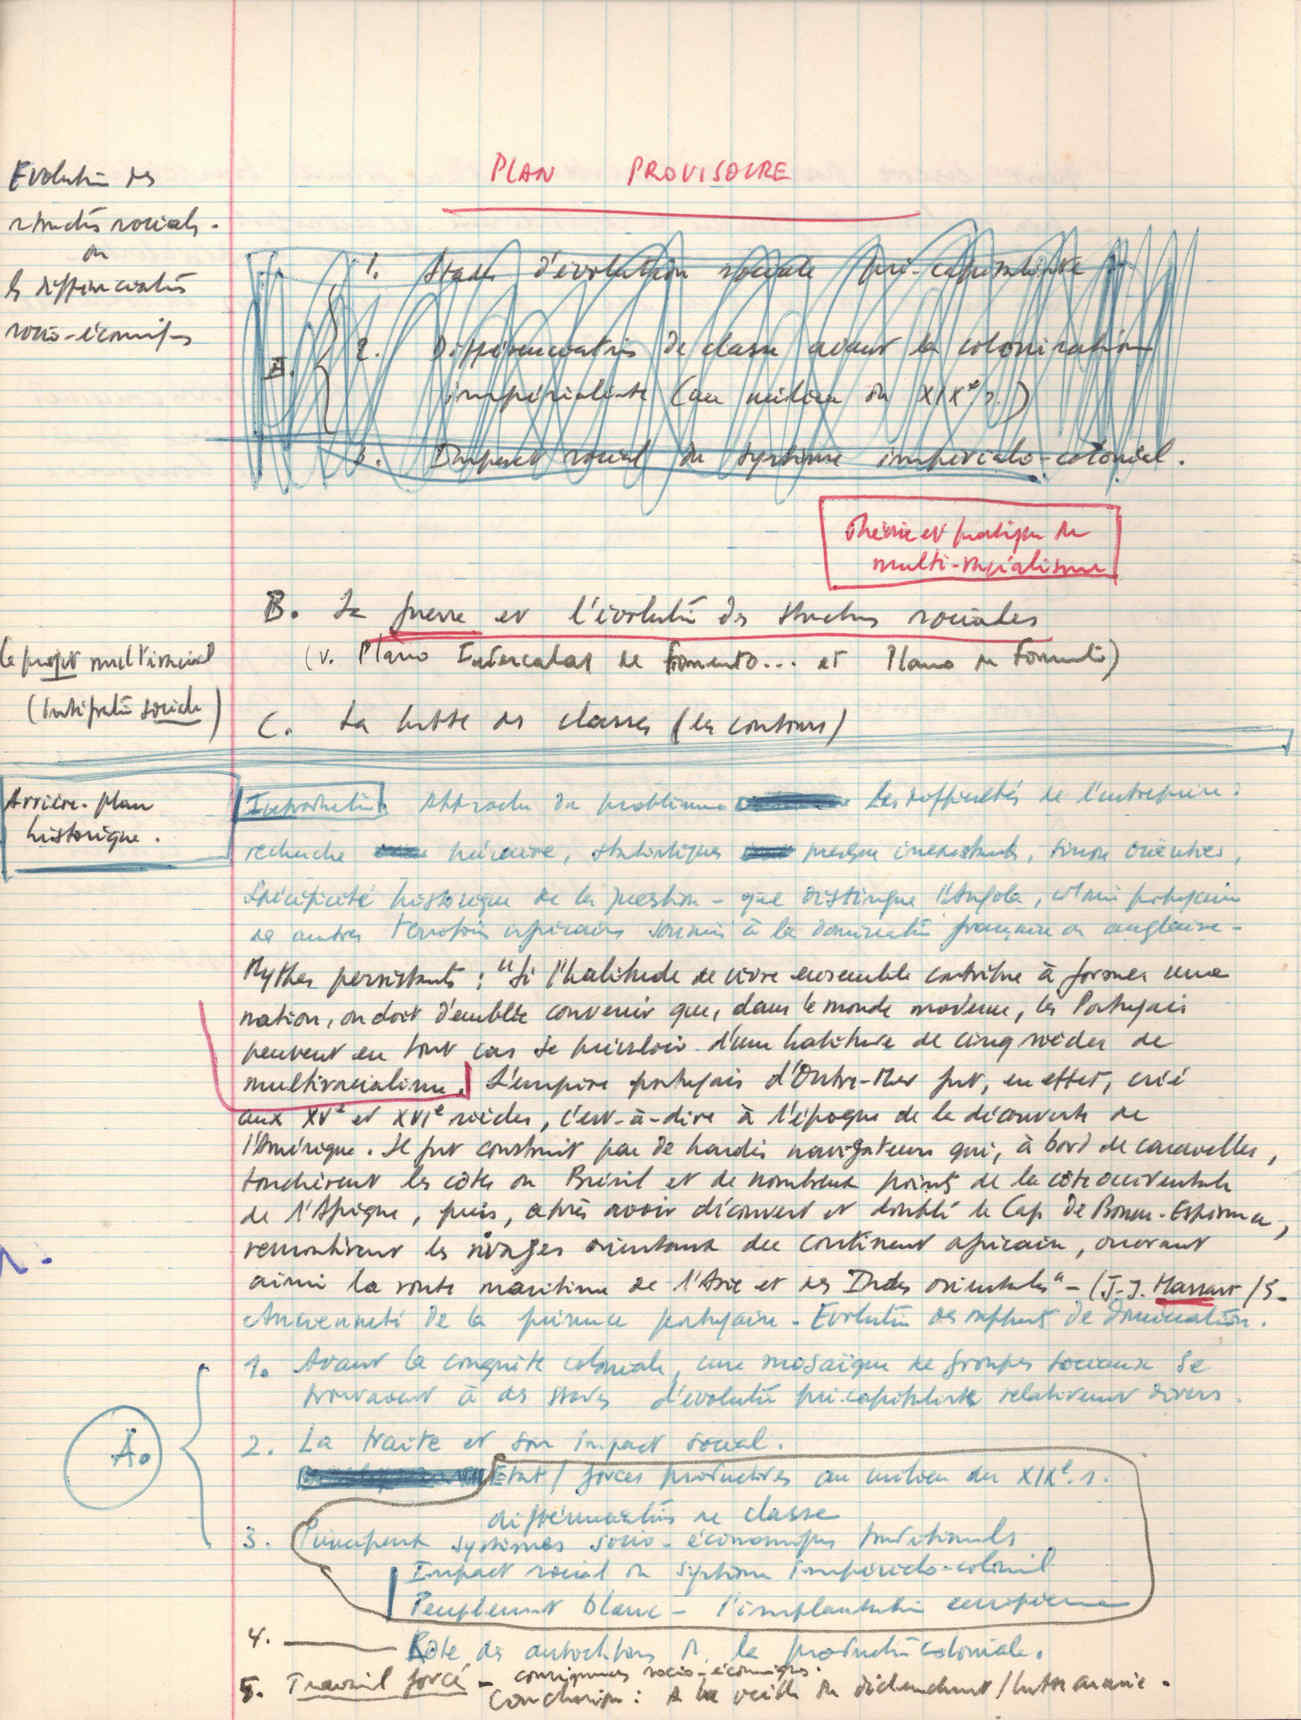 PLAN PROVISOIRE
Evolution des
structures sociales -
ou
la différenciation
socio-économique
1. Stades d'évolution sociale pré-capitaliste
2. Différenciation de classe avant la colonisation
impérialiste (au milieu du XIXe s.)
3. Impact social du système impérialo-colonial.
Théorie et pratique du
multi-racialisme
B. La guerre et l'évolution des structures sociales
(v. Plano Intercalar de Fomento... et Plano de Fomento)
Le projet multiracial
( sociale)
C. La lutte des classes (les contours)
Arrière-plan
historique.
Introduction Approche du problème Les difficultés de l'entreprise :
recherche précaire, statistiques presque inexistantes, sinon orientées,
Spécificité historique de la question - que distingue l'Angola, portugais
de autres territoires africains soumis à la domination française ou anglaise -
Mythes persistants : "Si l'habitude de vivre ensemble contribue à former une
nation, on doit d'emblée convenir que, dans le monde moderne, les Portugais
peuvent en tout cas se prévaloir d'une habitude de cinq siècles de
multiracialisme. L'empire portugais d'Outre-Mer fut, en effet, créé
aux XVe et XVIe siècles, c'est-à-dire à l'époque de la découverte de
l'Amérique. Il fut construit par de hardis navigateurs qui, à bord de caravelles,
touchèrent les côtes du Brésil et de nombreux points de la côte occidentale
de l'Afrique, puis, après avoir découvert et doublé le Cap de Bonne-Espérance,
remontèrent les rivages orientaux du continent africain, ouvrant
ainsi la route maritime de l'Asie et des Indes orientales" - (J-J.
Ancienneté de la présence portugaise - Evolution des rapports de domination.
1. Avant la conquête coloniale, une mosaïque de groupes sociaux se
trouvaient à des stades d'évolution pré-capitaliste relativement divers.
A.
2. La traite et son impact social.
Etat / forces productives au milieu du XIXe s.
différenciation de classe
3. Principaux systèmes socio-économiques traditionnels
Impact social du système impérialo-colonial
Peuplement blanc - l'implantation européenne
4. Rôle des autochtones ds. la production coloniale.
5. Travail forcé - conséquences socio-économiques.
Conclusion : A la veille du déclenchement / lutte armée.